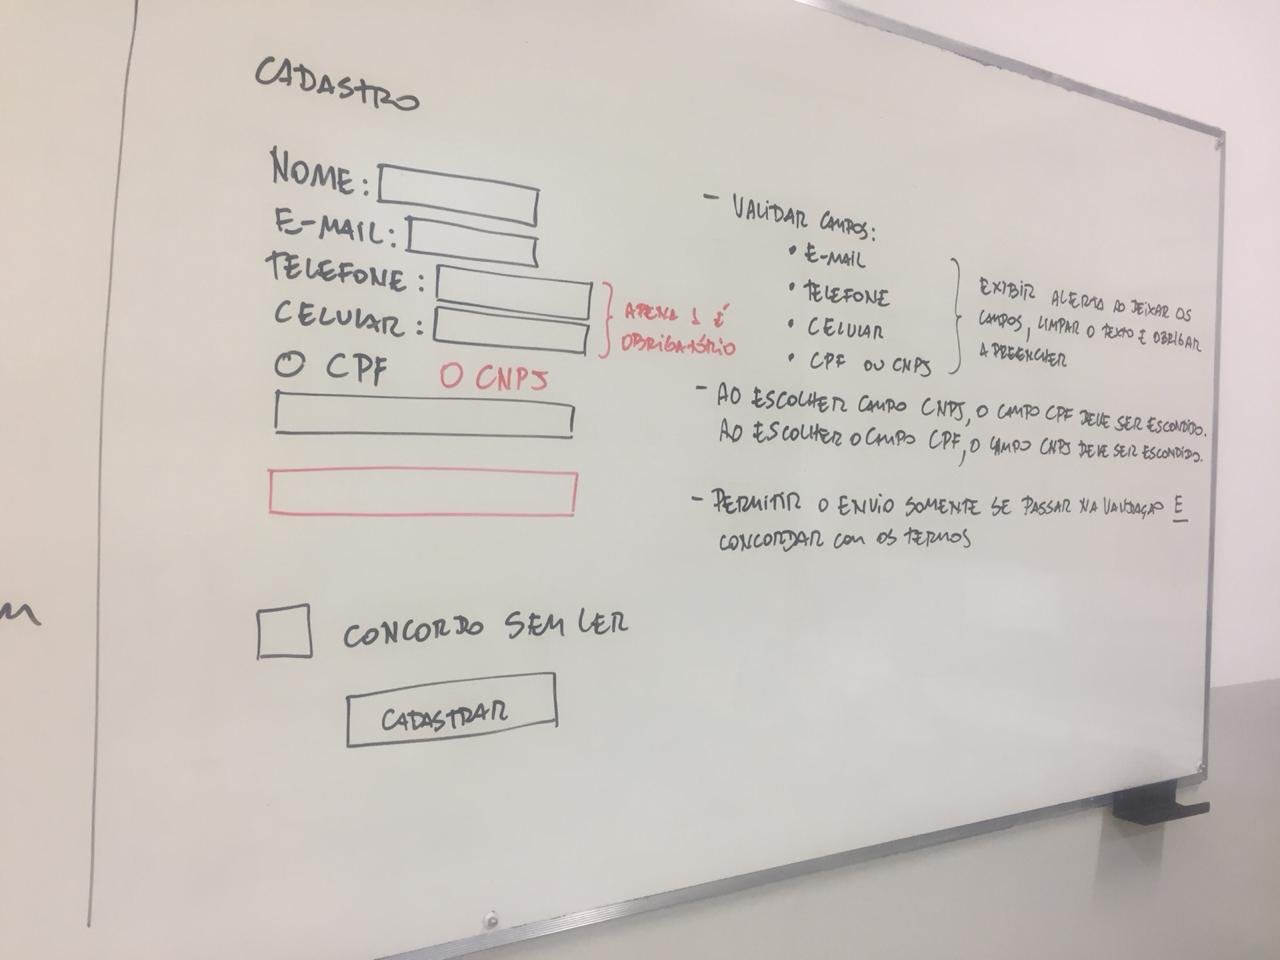 CADASTRO
NOME:
E-MAIL:
TELEFONE:
CELULAR:
APENA 1 É
OBRIGATÓRIO
CPF
CNPJ
CONCORDO SEM LER
CADASTRAR
- VALIDAR CAMPOS:
• E-MAIL
• TELEFONE
• CELULAR
• CPF OU CNPJ
EXIBIR ALERTA AO DEIXAR OS
CAMPOS, LIMPAR O TEXTO E OBRIGAR
A PREENCHER
- AO ESCOLHER CAMPO CNPJ, O CAMPO CPF DEVE SER ESCONDIDO.
AO ESCOLHER O CAMPO CPF, O CAMPO CNPJ DEVE SER ESCONDIDO.
- PERMITIR O ENVIO SOMENTE SE PASSAR NA VALIDAÇÃO E
CONCORDAR COM OS TERMOS